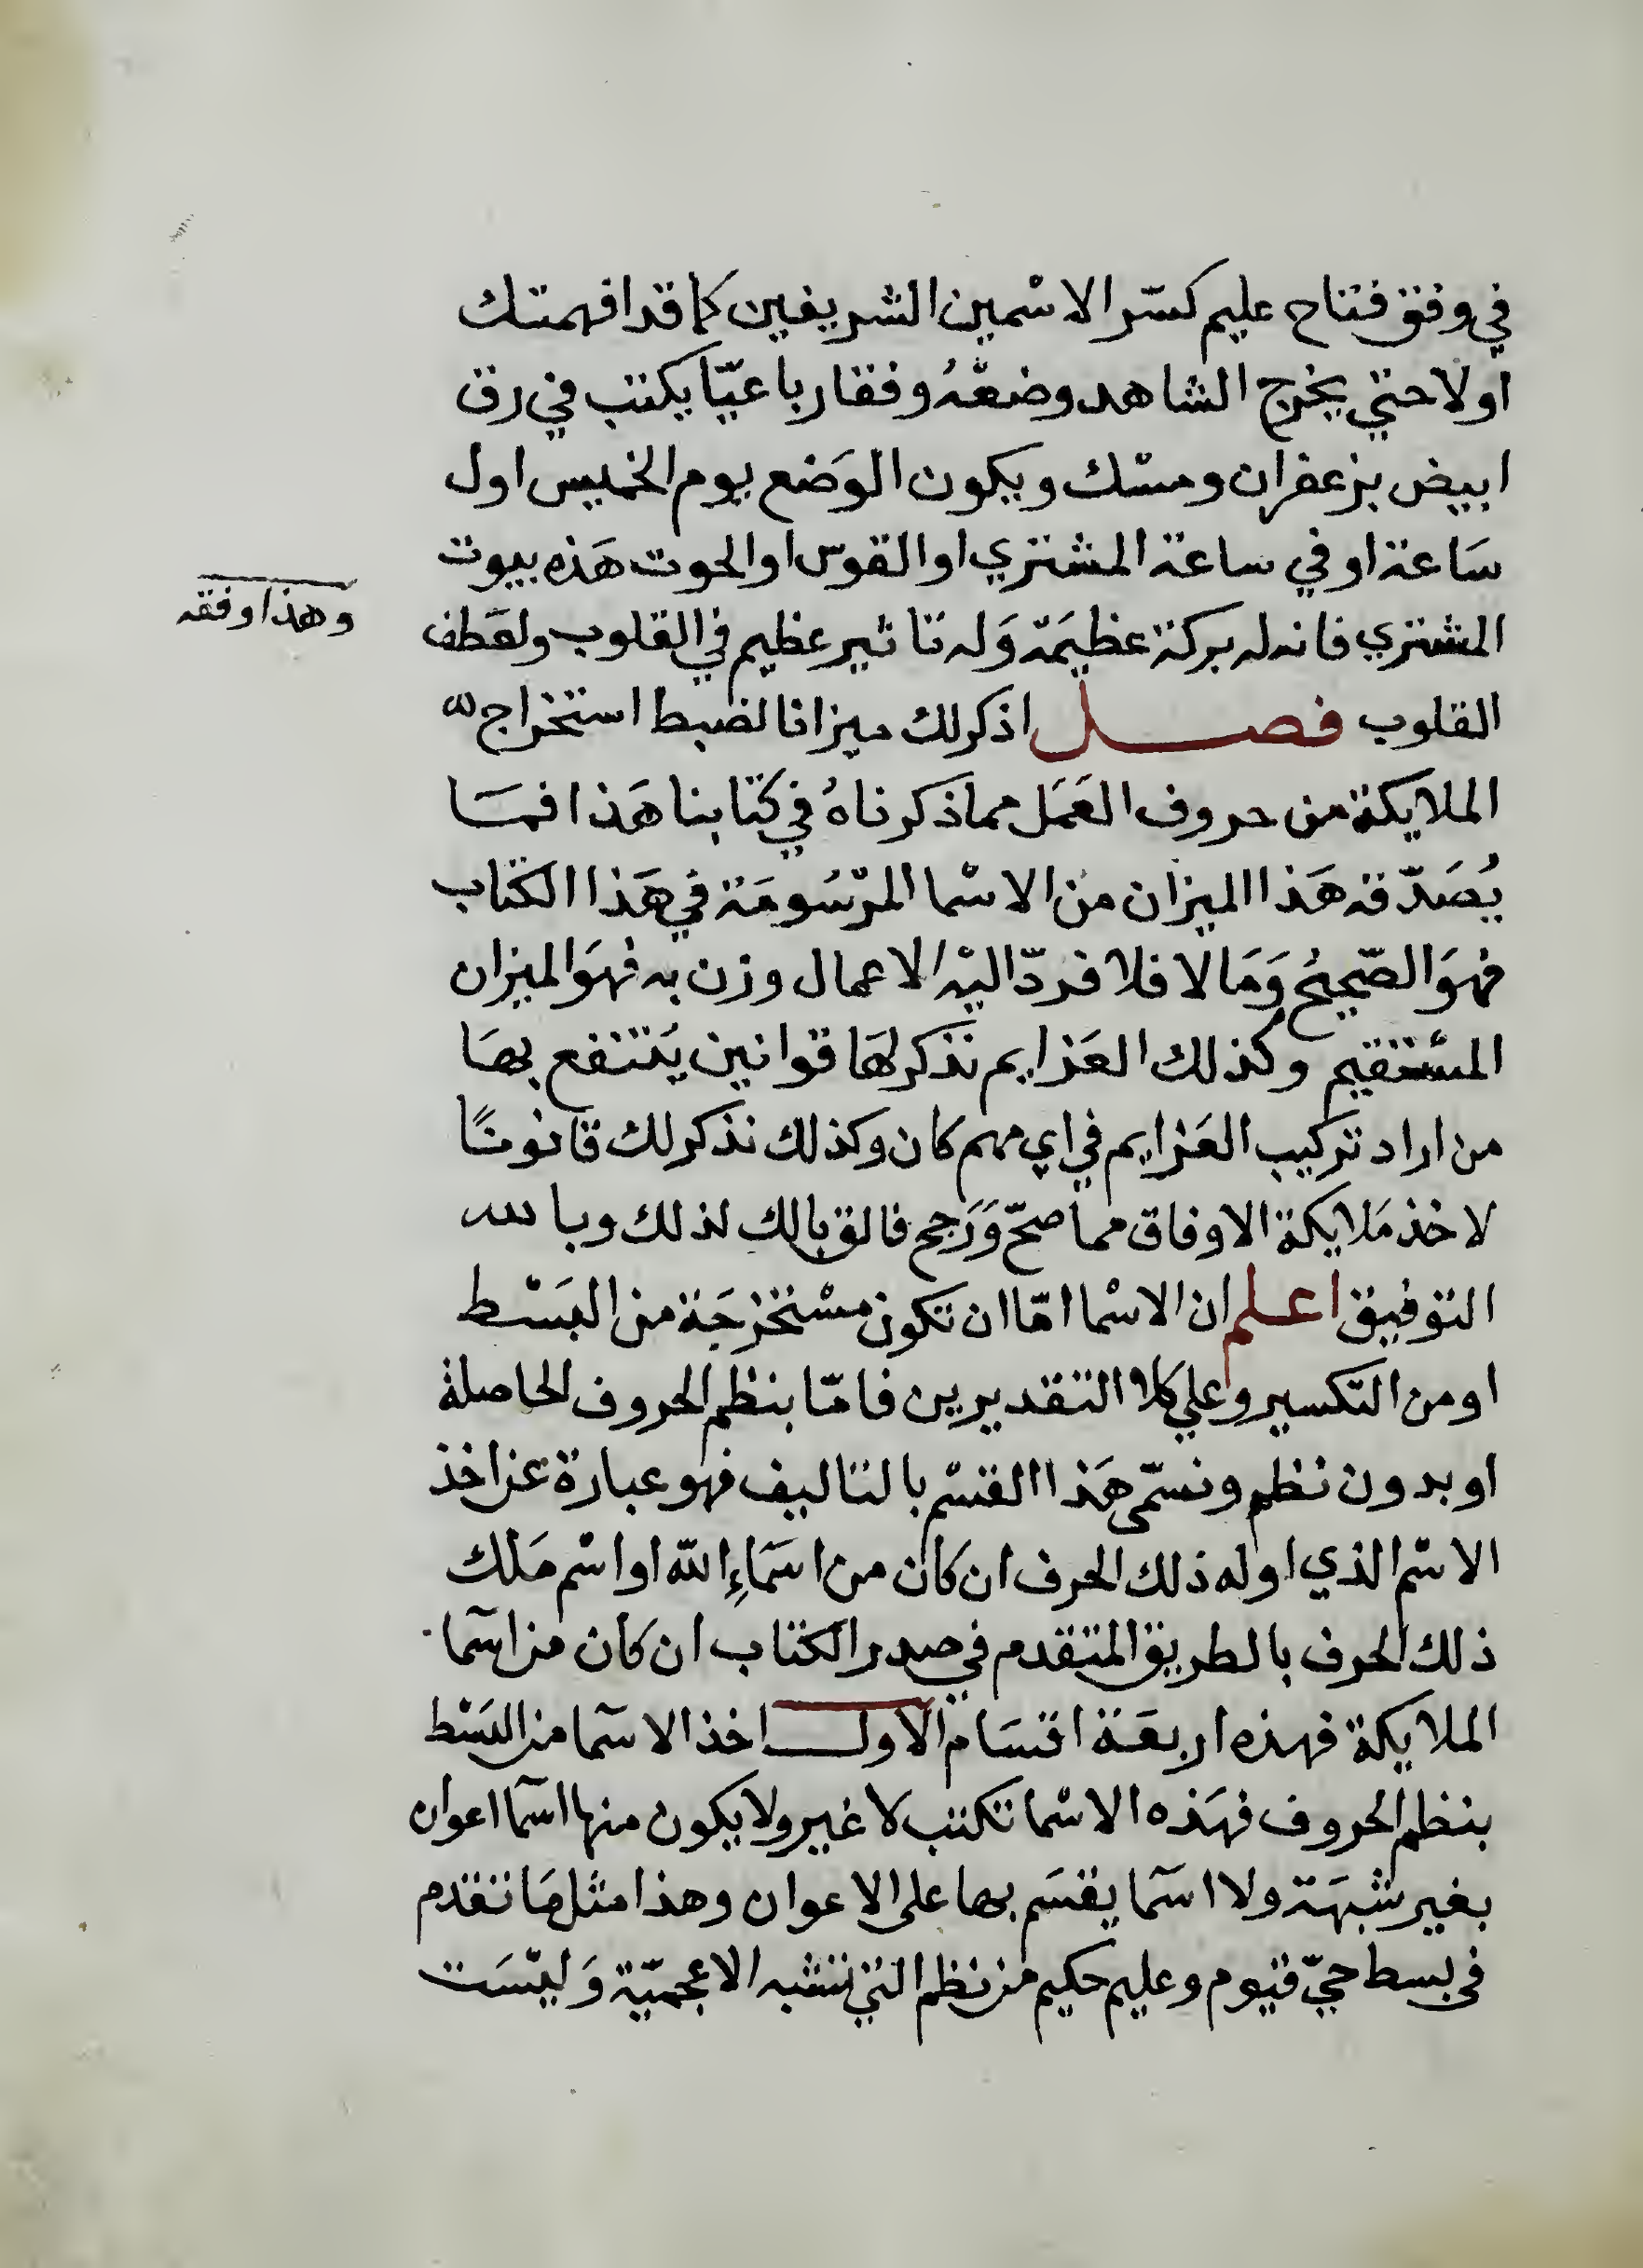 في وفق فتاح عليم كسّر الاسْمين الشريفين كما قد افهمتك
اولا حتي يخرج الشاهد وضعْهُ وفقا رباعيّا يكتب في رق
ابيض بزعفران ومسْك ويكون الوَضع يوم الخميس اول
سَاعة او في ساعة المشتري او القوس او الحوت هَذه بيوت
المشتري فانه له بركة عظيمَة وَله تاثير عظيم في القلوب ولعَطف
وهذا وفقه
القلوب فصل اذكر لك ميزانا لضبط استخراج
الملايكة من حروف العَمَل مما ذكرناهُ في كتابنا هَذا فمَا
يُصَدّقه هَذا الميزان من الاسْما المرْسُومَة في هَذا الكتاب
فهوَ الصّحِيحُ وَمَا لا فلا فردّ اليْه الاعمال وزن به فهوَ الميزان
المسْتقيم وكذلك العَزايم نذكر لهَا قوانين يَنتفع بهَا
من اراد تركيب العَزايم في اي مهم كان وكذلك نذكر لك قانونًا
لاخذ مَلايكة الاوفاق مما صحّ وَرَجح فالق بالك لذلك وبالله
التوفيق اعلم ان الاسْما امّا ان تكون مسْتخرَجَة من البَسْط
او من التكسير وعلي كلا التقديرين فامّا بنظم الحروف الحاصلة
او بدون نظم ونسمّى هَذا القسْم بالتاليف فهو عبارة عن اخذ
الاسْم الذي اوله ذلك الحرف ان كان من اسمَاءِ الله او اسْم مَلك
ذلك الحرف بالطريق المتقدم في صدر الكتاب ان كان من اسما
الملايكة فهذه اربعَة اقسَام الاول اخذ الاسما من البَسْط
بنظم الحروف فهَذه الاسْما تكتب لا غير ولا يكون منها اسما اعوان
بغير شبهَة ولا اسما يقسَم بها على الاعوان وهذا مثل مَا تقدم
في بسط حيّ قيوم وعليم حكيم من نظم التي تشبه الاعجميّة وَليسَت